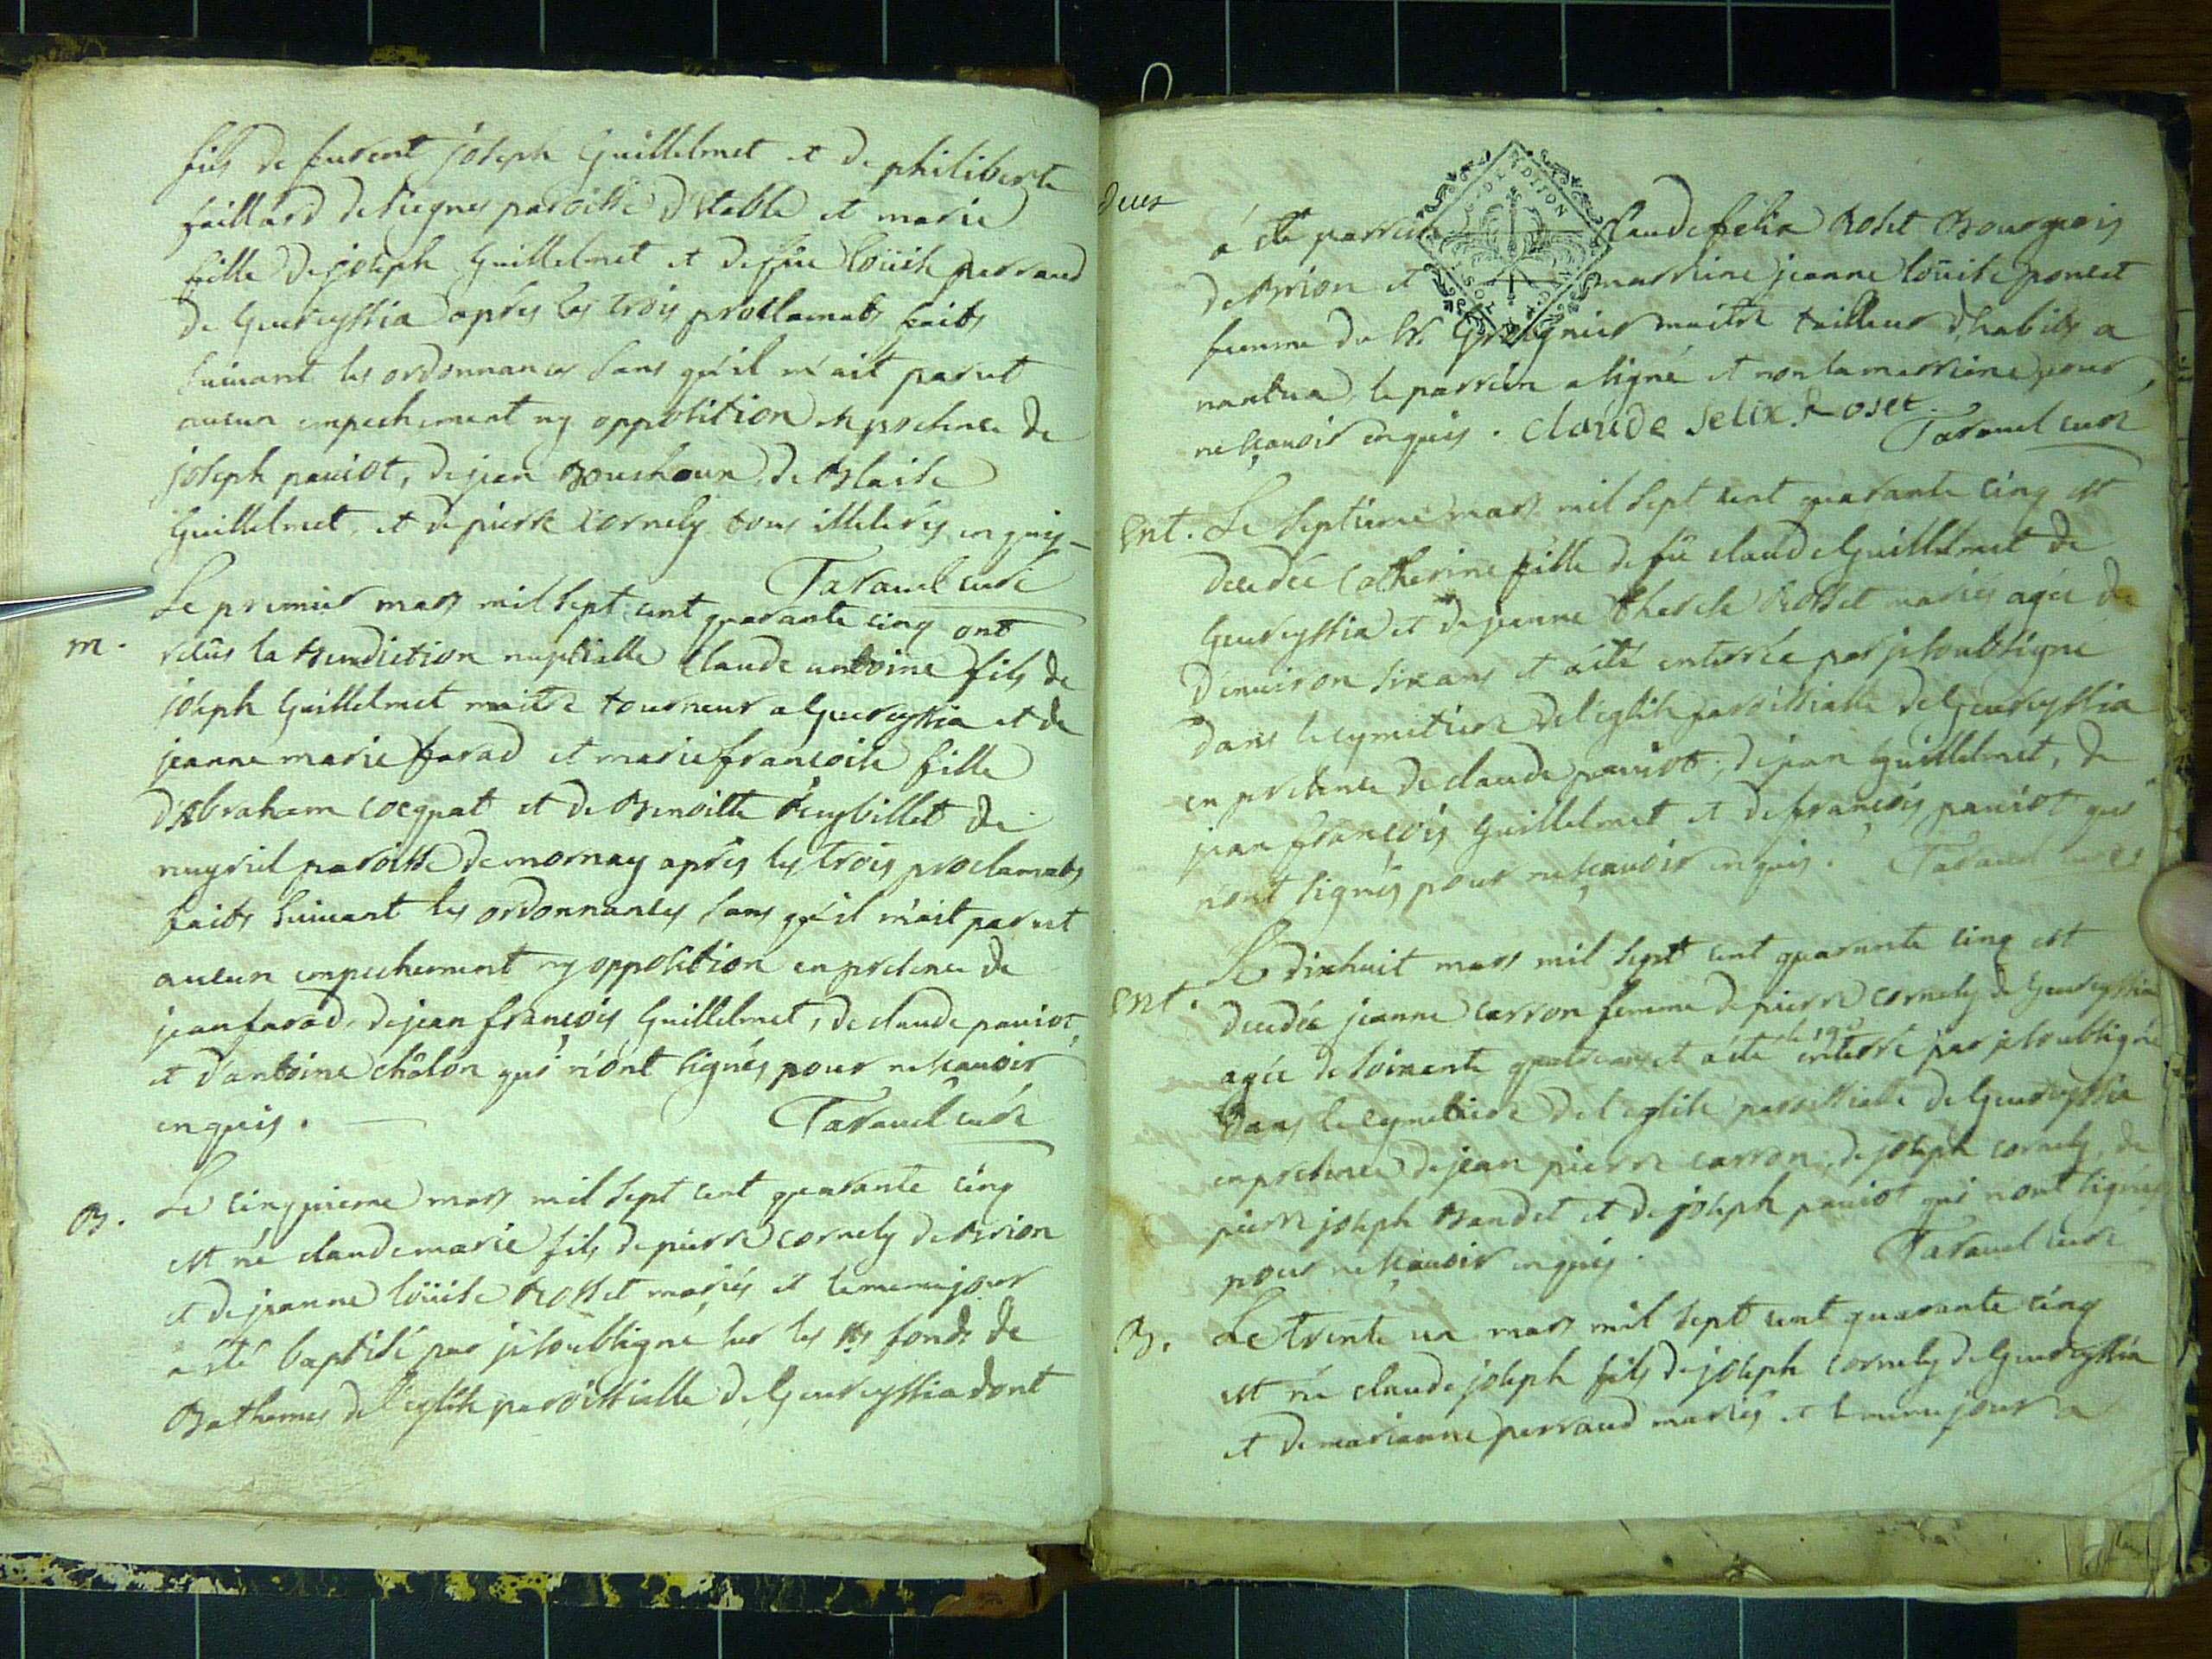 fils de furent joseph Guillelmet et de philiberte
faillard de paroisse d'Etable et marie
fille de joseph Guillelmet et de füe loüise perraud
de Geureyssia après les trois proclamats faits
suivant les ordonnances sans qu'il m'ait parut
aucun empechement ny opposition en presence de
joseph paviot, de jean Bouchoux, de Blaise
Guillelmet, et de pierre Cornely tous illeterés enquis
Taravel curé
m. Le premier mars mil sept cent quarante cinq ont
recûs la Benediction nuptialle Claude antoine fils de
joseph Guillelmet maitre tourneur a Geureyssia et de
jeanne marie farad et marie françoise fille
d'Abraham Cocquat et de Benoitte de
paroisse de mornay après les trois proclamats
faits suivant les ordonnances sans qu'il m'ait parut
aucun empechement ny opposition en presence de
jean farad, de jean françois Guillelmet, de claude paviot,
et d'antoine châlon qui n'ont signés pour ne scavoir
enquis. Taravel curé
B. Le cinquieme mars mil sept cent quarante cinq
est né claude marie fils de pierre cornely de Brion
et de jeanne loüise Rosset mariés et le meme jour
a été baptisé par je soubsigné sur les sts fonds de
Bathemes de l'eglise paroissialle de Geureyssia dont
deux
a été parrein Claude felix Roset Bourgeois
de Brion et marrine jeanne loüise poncet
femme du Sr. maitre tailleur d'habits a
nantua, le parrein a signé et non la marrine pour
ne sçavoir enquis. claude Felix Roset.
Taravel curé
Ent. Le septieme mars mil sept cent quarante cinq est
decedée Catherine fille de fû claude Guillelmet de
Geureyssia et de jeanne therese Rosset mariés agée de
d'environ six ans et a été enterrée par je soubsigné
dans le cymetiere de l'eglise paroissialle de Geureyssia
en presence de claude paviot, de jean Guillelmet, de
jean françois Guillelmet et de françois paviot qui
n'ont signés pour ne sçavoir enquis. Taravel curé
Ent. Le dixhuit mars mil sept cent quarante cinq est
decedée jeanne carron femme de pierre cornely de Geureyssia
agée de soixante quatre ans et a été le 19e enterré par je soubsigné
dans le cymetiere de l'eglise paroissialle de Geureyssia
en presence de jean pierre carron, de joseph cornely, de
pierre joseph Bandet et de joseph paviot qui n'ont signés
pour ne sçavoir enquis. Taravel curé
B. Le trente un mars mil sept cent quarante cinq
est né claude joseph fils de joseph Cornely de Geureyssia
et de marianne perraud mariés et le meme jour a